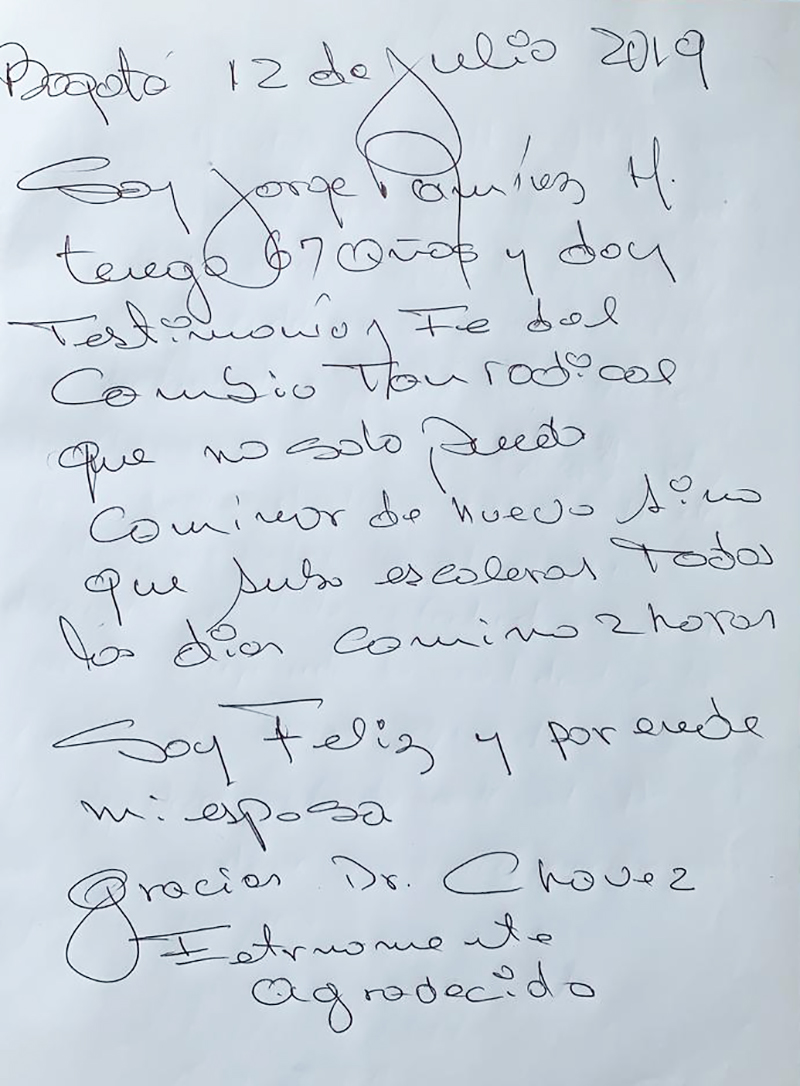 Bogotá 12 de Julio 2019
Soy Jorge Ramírez H.
tengo 67 años y doy
Testimonio y Fe del
Cambio Tan radical
que no solo puedo
Caminar de nuevo sino
que subo escaleras Todos
los días camino 2 horas
Soy Feliz y por ende
mi esposa
Gracias Dr. Chavez
Eternamente
agradecido